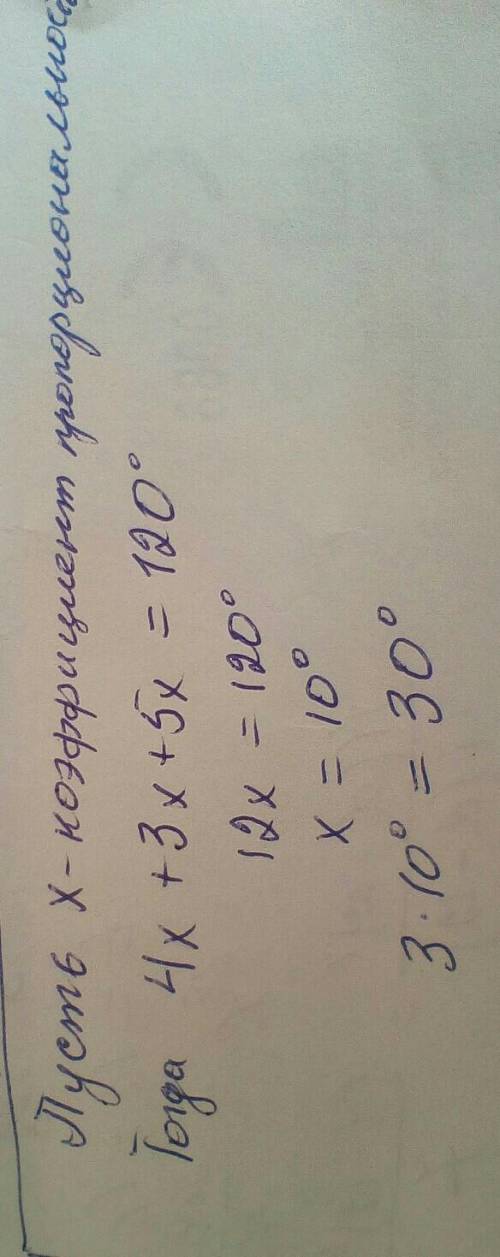 Пусть x - коэффициент пропорциональнос
Тогда 4x + 3x + 5x = 120°
12x = 120°
x = 10°
3 · 10° = 30°